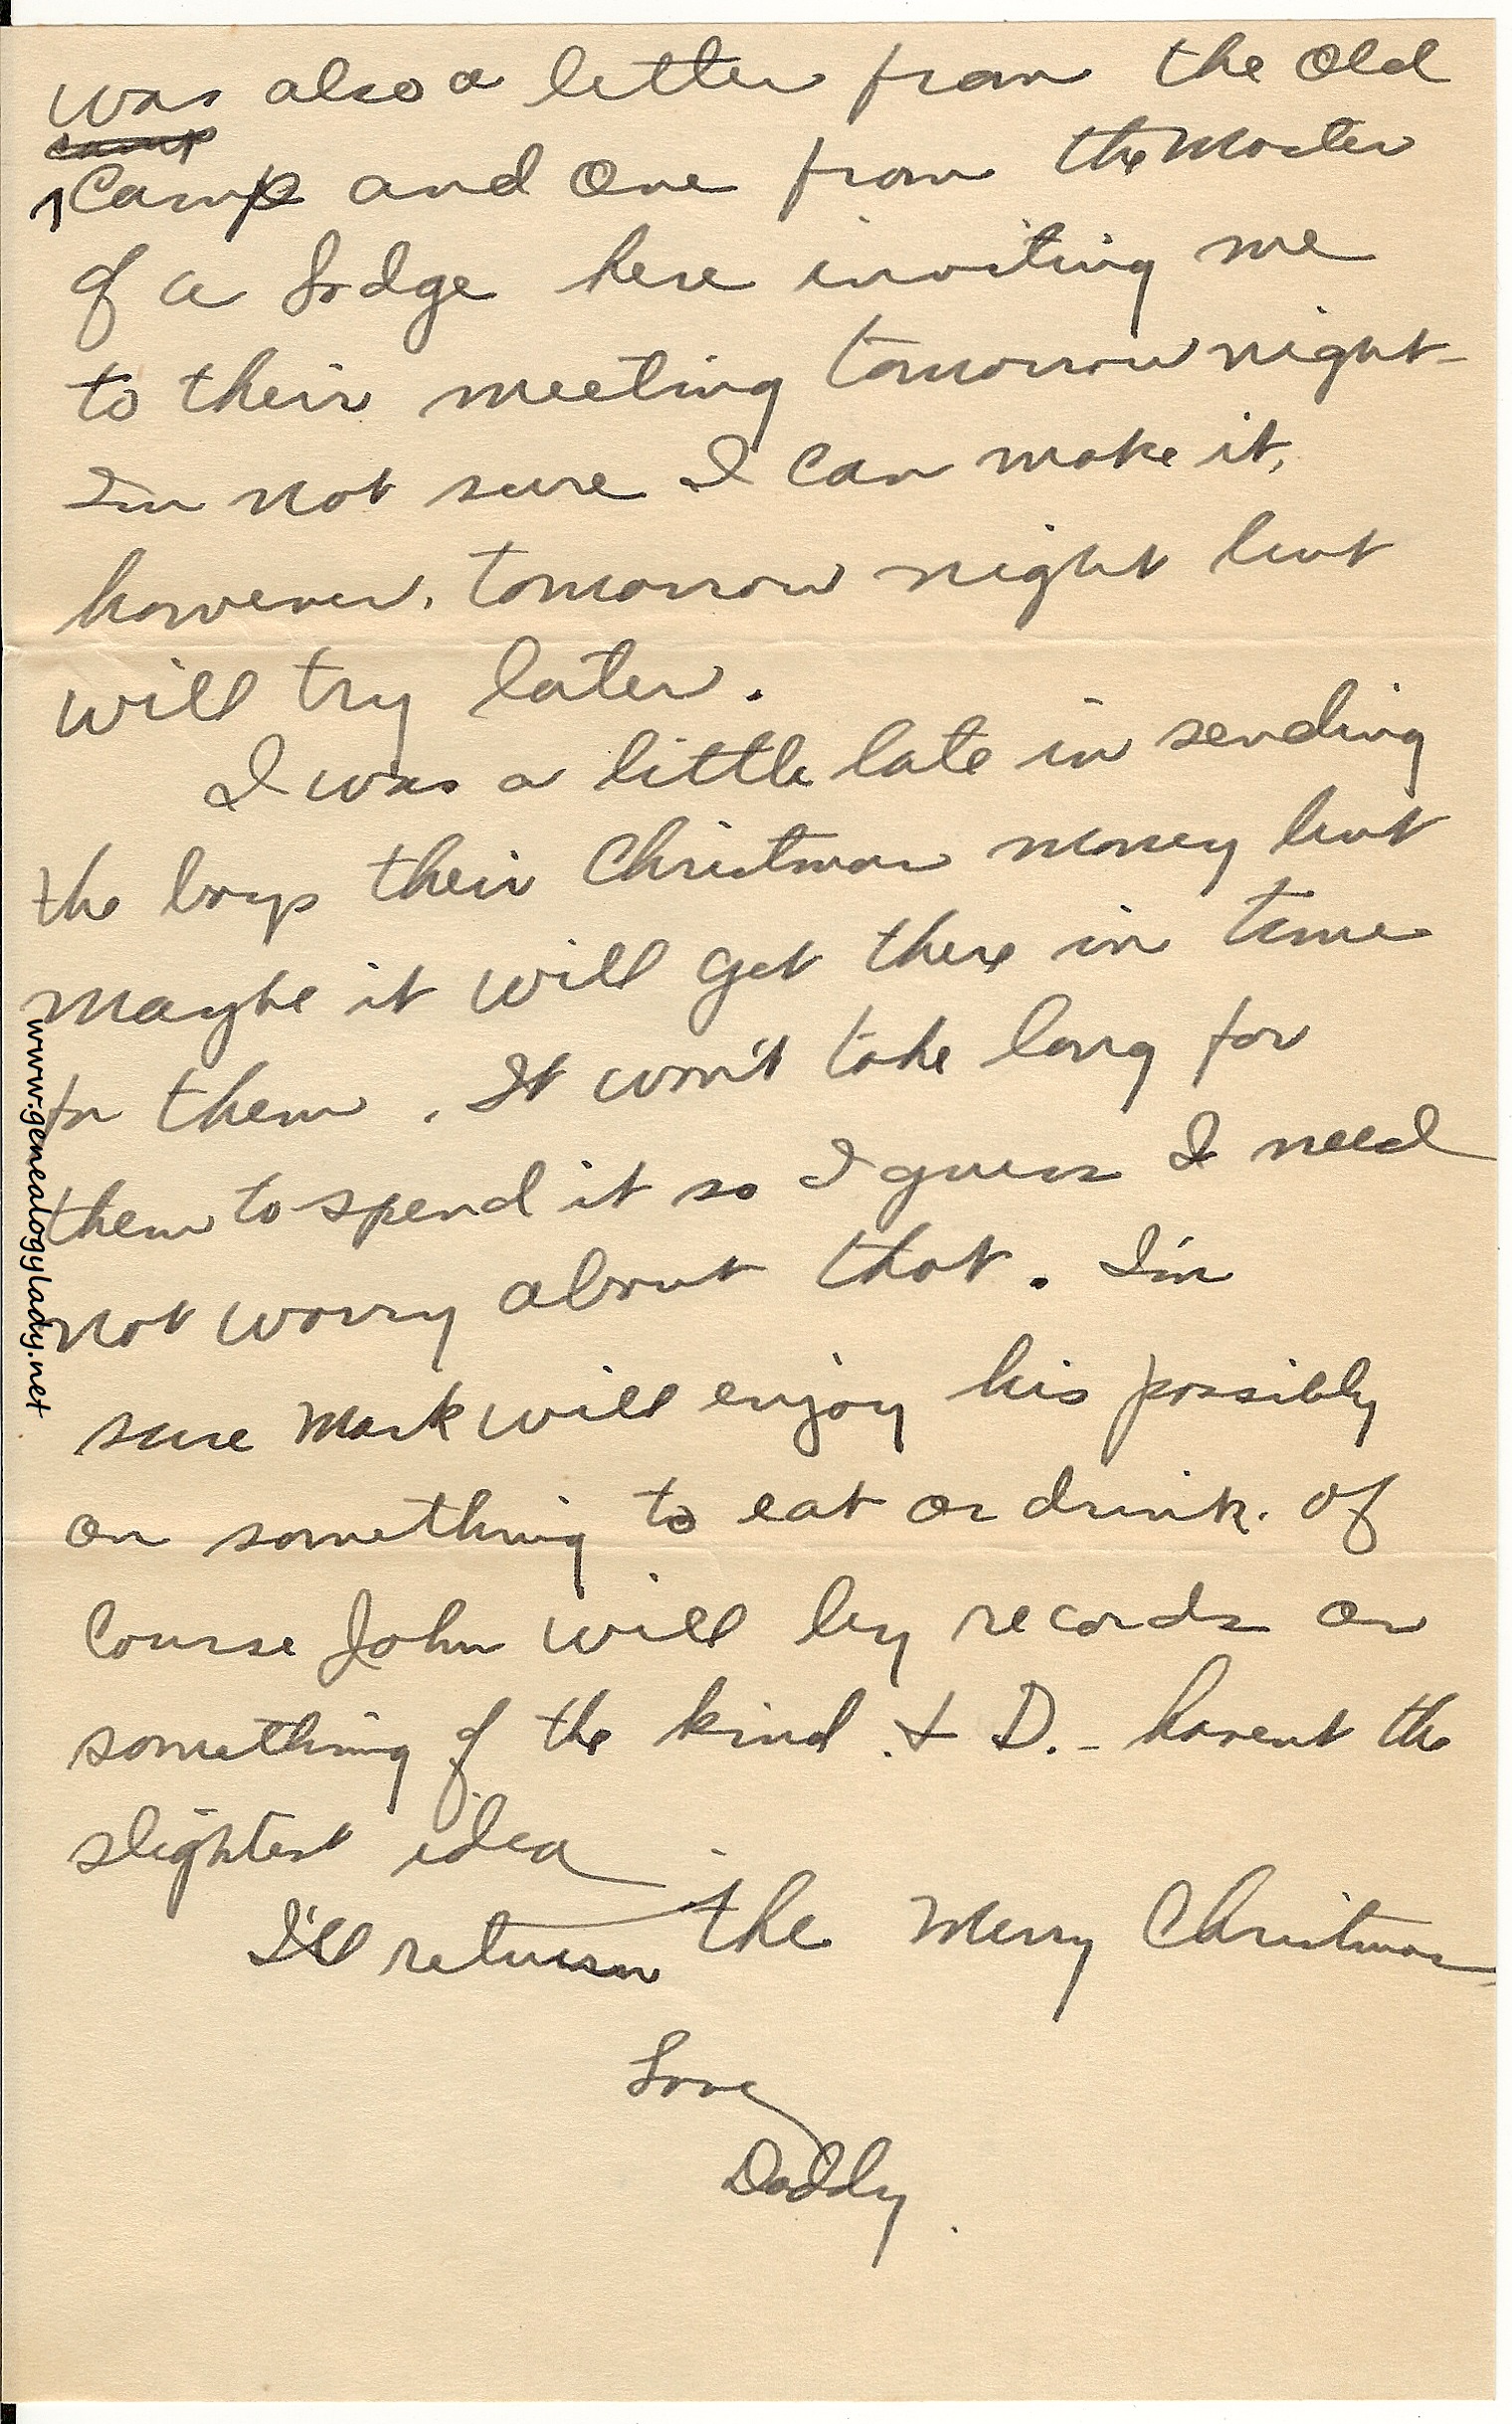 was also a letter from the Old
camp
Camp and One from the Master
of a Lodge here inviting me
to their meeting tomorrow night-
Im not sure I can make it,
however, tomorrow night but
will try later.
I was a little late in sending
the boys their Christmas money but
maybe it will get there in time
for them. It won't take long for
them to spend it so I guess I need
not worry about that. I'm
sure Mark will enjoy his possibly
on something to eat or drink. Of
Course John will by records or
something of the kind. & D. - havent the
slightest idea
I'll return the Merry Christmas
Love
Daddy.
www.genealogylady.net